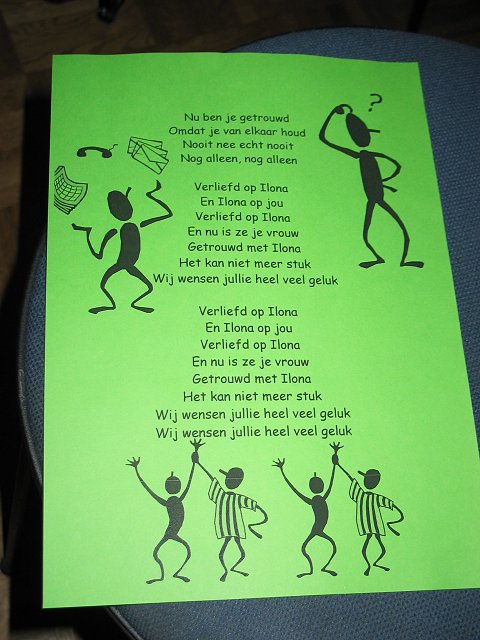 Nu ben je getrouwd
Omdat je van elkaar houd
Nooit nee echt nooit
Nog alleen, nog alleen
Verliefd op Ilona
En Ilona op jou
Verliefd op Ilona
En nu is ze je vrouw
Getrouwd met Ilona
Het kan niet meer stuk
Wij wensen jullie heel veel geluk
Verliefd op Ilona
En Ilona op jou
Verliefd op Ilona
En nu is ze je vrouw
Getrouwd met Ilona
Het kan niet meer stuk
Wij wensen jullie heel veel geluk
Wij wensen jullie heel veel geluk
?